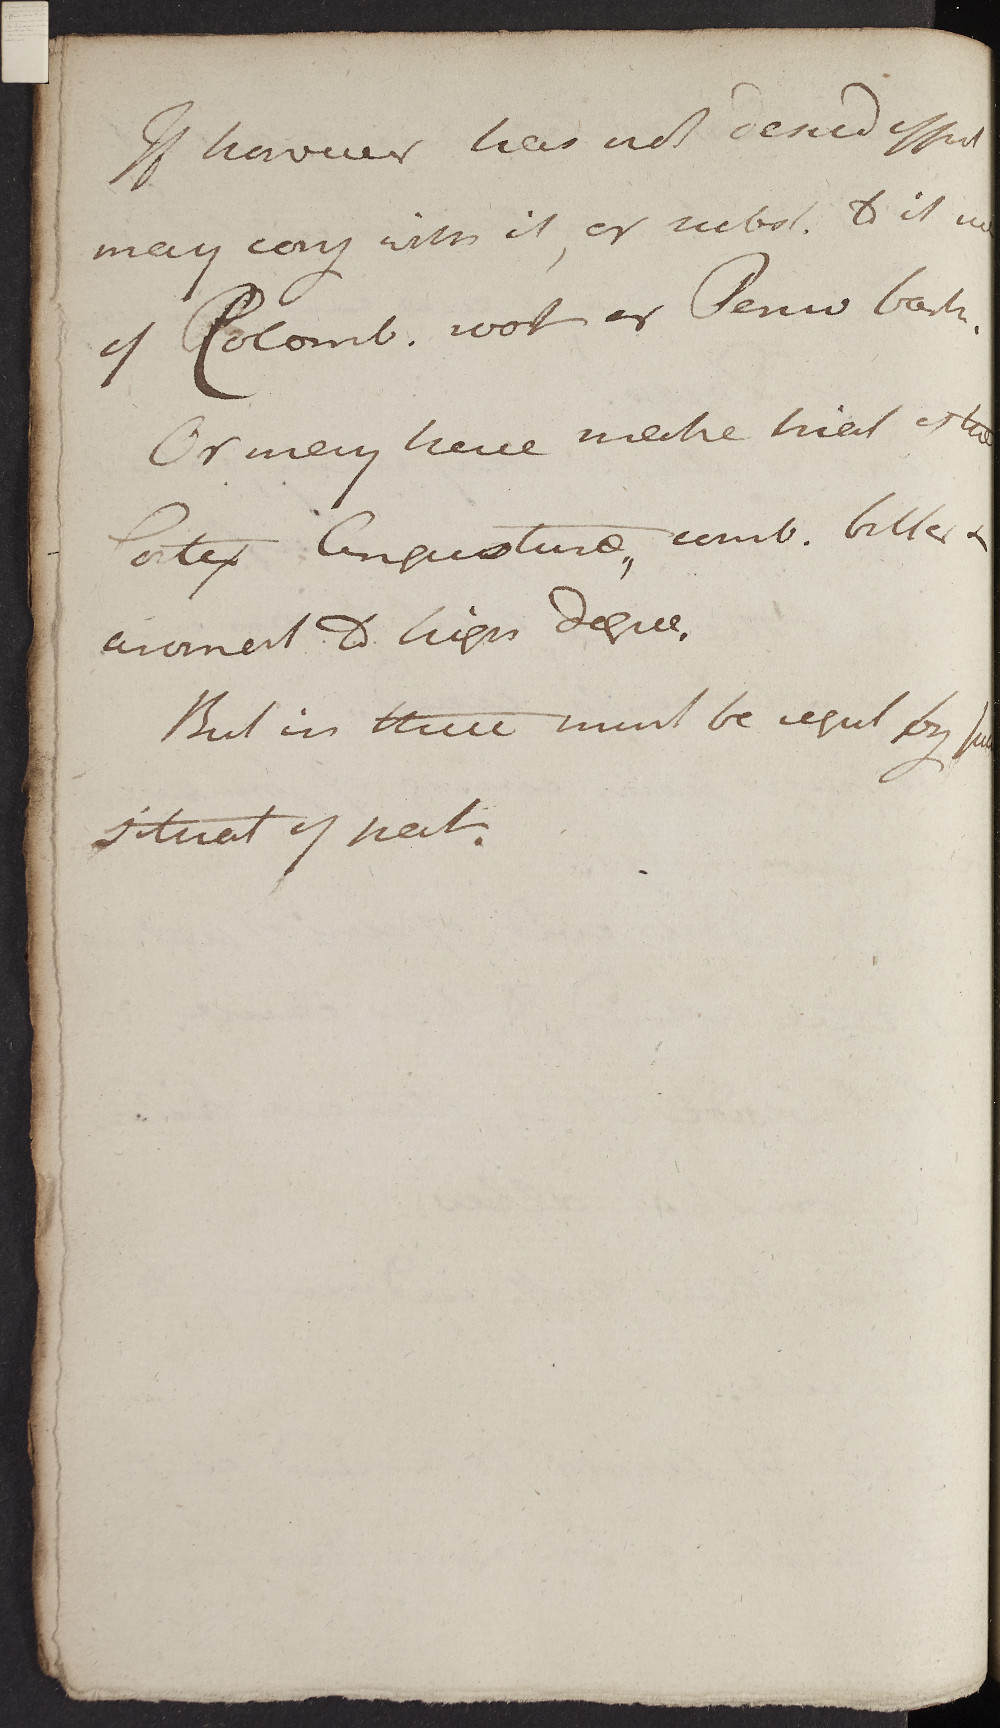 If however has not desired effect
may conj with it, or subst. to it
of Colomb. root or Peruv bark.
Or may have make trial of the
Cortex Angusturæ, comb. bitter &
aromat to high degree.
But in these must be regul by
situat of pat.